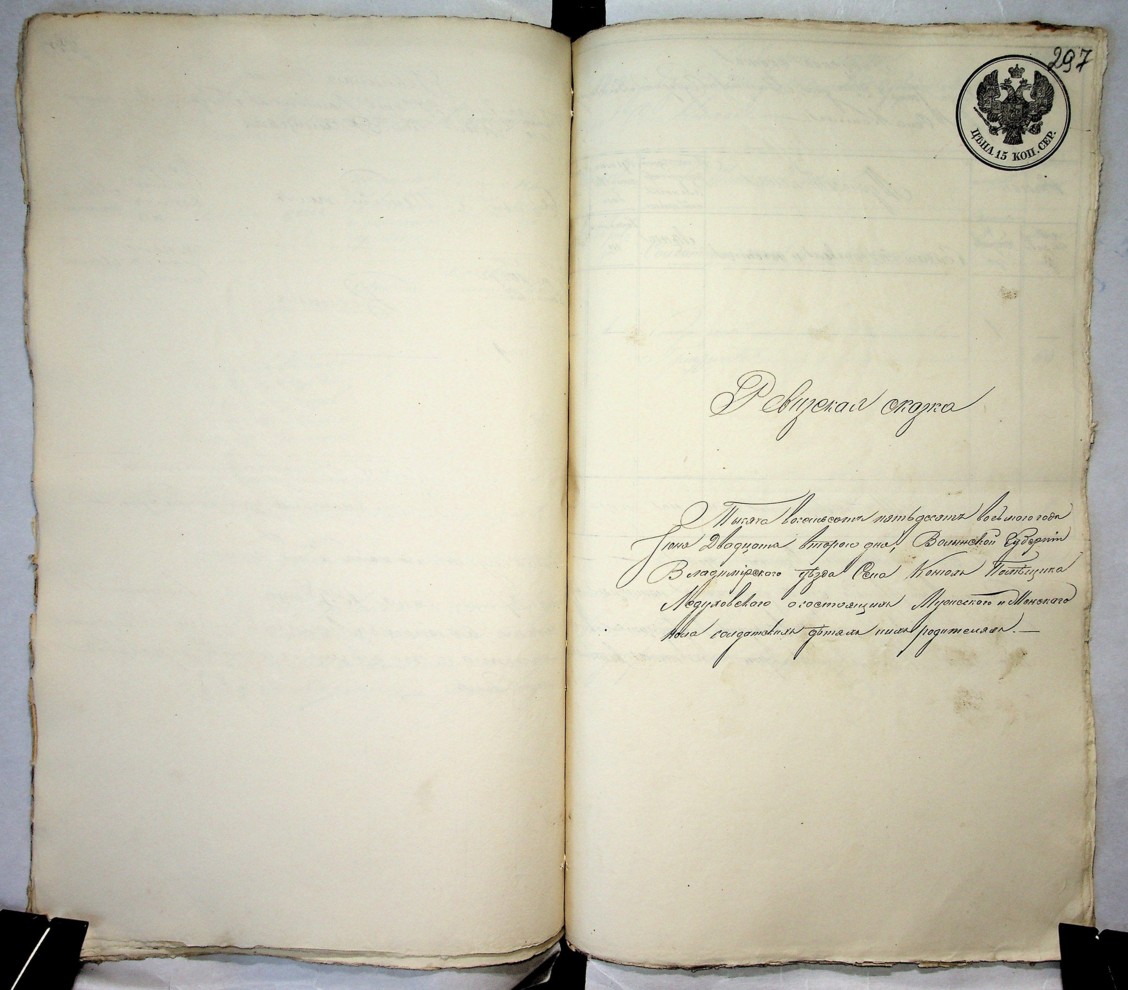 297
ЦѢНА 15 КОП. СЕР.
Ревизская сказка
Тысяча восемьсотъ пятьдесятъ восьмаго года
Іюня Двадцать втораго дня, Волынской Губерніи
Владимірскаго уѣзда Села Конюхъ Помѣщика
о состоящихъ Мужескаго и Женскаго
пола солдатскихъ дѣтяхъ и ихъ родителяхъ.—